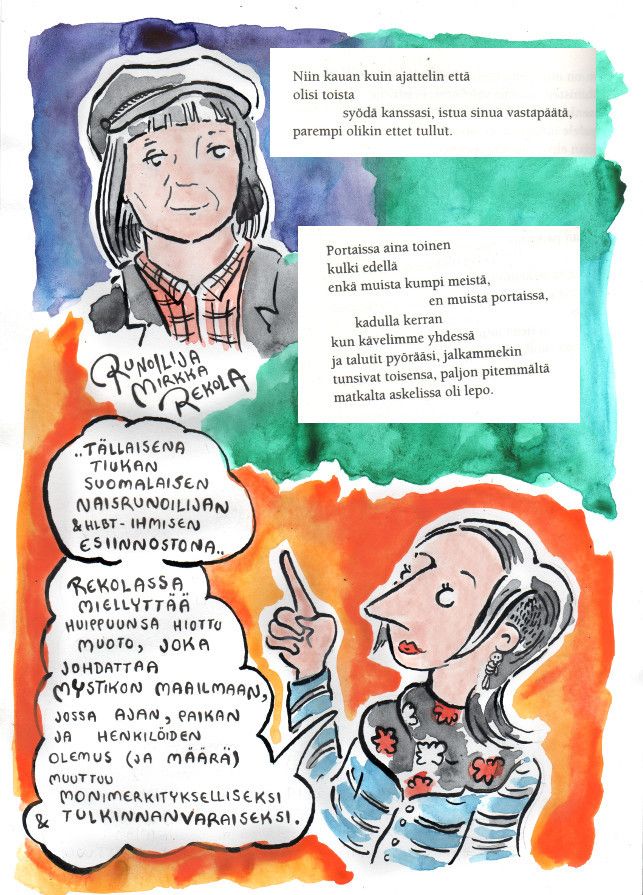 Niin kauan kuin ajattelin että
olisi toista
syödä kanssasi, istua sinua vastapäätä,
parempi olikin ettet tullut.
Portaissa aina toinen
kulki edellä
enkä muista kumpi meistä,
en muista portaissa,
kadulla kerran
kun kävelimme yhdessä
ja talutit pyörääsi, jalkammekin
tunsivat toisensa, paljon pitemmältä
matkalta askelissa oli lepo.
RUNOILIJA
MIRKKA
REKOLA
..TÄLLAISENA
TIUKAN
SUOMALAISEN
NAISRUNOILIJAN
& HLBT-IHMISEN
ESIINNOSTONA..
REKOLASSA
MIELLYTTÄÄ
HUIPPUUNSA HIOTTU
MUOTO, JOKA
JOHDATTAA
MYSTIKON MAAILMAAN,
JOSSA AJAN, PAIKAN
JA HENKILÖIDEN
OLEMUS (JA MÄÄRÄ)
MUUTTUU
MONIMERKITYKSELLISEKSI
& TULKINNANVARAISEKSI.